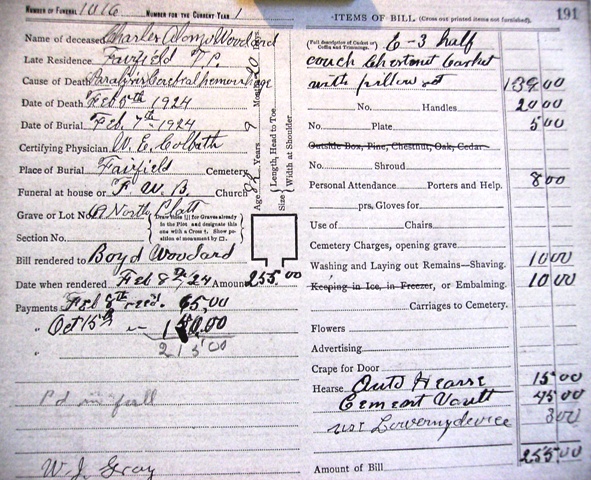 NUMBER OF FUNERAL 1016 NUMBER FOR THE CURRENT YEAR
Name of deceased Charles Woodard
Late Residence, Fairfield
Cause of Death Paralysis Cerebral hemorrhage
Date of Death Feb 5th 1924
Date of Burial Feb. 7th 1924
Certifying Physician, W. E. Colbath
Place of Burial Fairfield Cemetery
Funeral at house or F. W. B. Church
Grave or Lot No. North
Draw lines for Graves already in the Plot and designate this one with a Cross †. Show position of monument by □.
Section No.
Bill rendered to Boyd Woodard
Date when rendered, Feb 8th 24 Amount 255.00
Payments Feb 8th recd. 65,00
" Oct 15th 150.00
" 215 00
P'd in full
W. J. Gray
Age Years Months Days
Size { Length, Head to Toe
Width at Shoulder
ITEMS OF BILL (Cross out printed items not furnished). 191
(Full description of Casket or Coffin and Trimmings.) E-3 half
couch Chestnut Casket
with pillow set 139 00
No. Handles 20 00
No. Plate 5 00
Outside Box, Pine, Chestnut, Oak, Cedar
No. Shroud
Personal Attendance Porters and Help. 8 00
prs. Gloves for
Use of Chairs.
Cemetery Charges, opening grave
Washing and Laying out Remains—Shaving. 10 00
Keeping in Ice, in Freezer, or Embalming. 10 00
Carriages to Cemetery.
Flowers
Advertising
Crape for Door
Hearse Auto Hearse 15 00
Cement Vault 45 00
use Lowering device 3 00
Amount of Bill 255.00